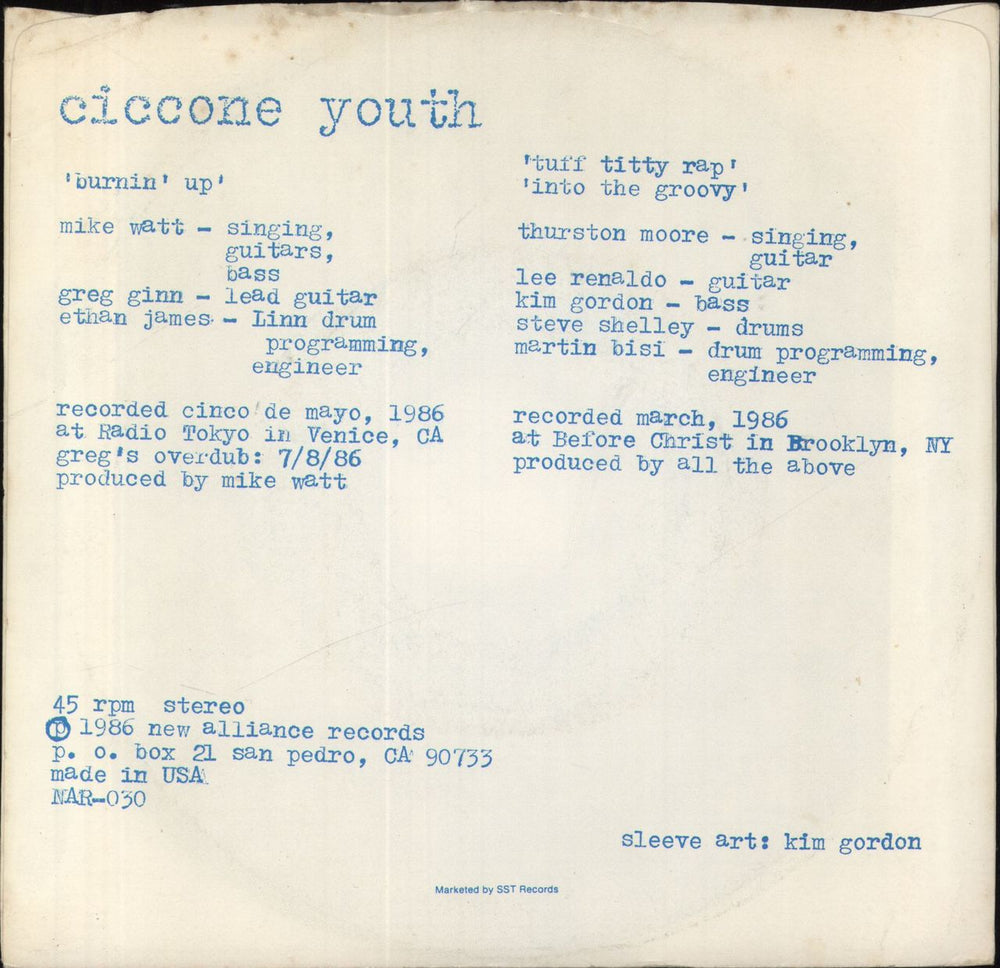 ciccone youth
'burnin' up'
mike watt - singing,
guitars,
bass
greg ginn - lead guitar
ethan james - Linn drum
programming,
engineer
recorded cinco de mayo, 1986
at Radio Tokyo in Venice, CA
greg's overdub: 7/8/86
produced by mike watt
'tuff titty rap'
'into the groovy'
thurston moore - singing,
guitar
lee renaldo - guitar
kim gordon - bass
steve shelley - drums
martin bisi - drum programming,
engineer
recorded march, 1986
at Before Christ in Brooklyn, NY
produced by all the above
45 rpm stereo
℗ 1986 new alliance records
p. o. box 21 san pedro, CA 90733
made in USA
NAR-030
sleeve art: kim gordon
Marketed by SST Records